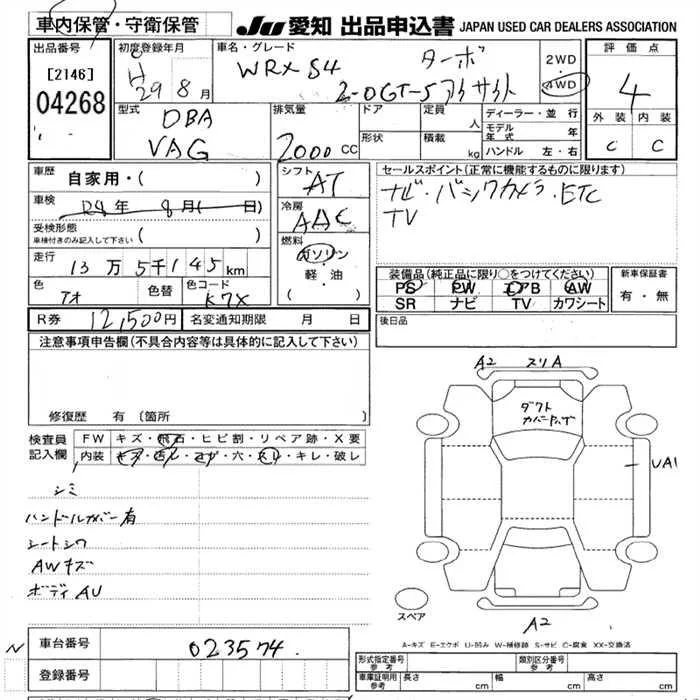 車内保管・守衛保管
JU 愛知 出品申込書 JAPAN USED CAR DEALERS ASSOCIATION
出品番号
[2146]
04268
初度登録年月
H 29 8月
車名・グレード
WRX S4 ターボ
2.0GT-S アイサイト
2WD
4WD
評価点
4
外装 内装
C C
型式
DBA
VAG
排気量
2000 CC
ドア
形状
定員
人
積載
kg
ディーラー・並行
モデル年式 年
ハンドル 左・右
車歴 自家用・( )
車検 R4年 8月( 日)
受検形態
車検付きのみ記入して下さい ( )
走行 13万5千145km
色 アオ 色替 色コード K7X
シフト AT
冷房 AAC
燃料
ガソリン
軽・油
( )
セールスポイント(正常に機能するものに限ります)
ナビ・バックカメラ・ETC
TV
装備品(純正品に限り○をつけてください)
PS PW エアB AW
SR ナビ TV カワシート
新車保証書
有・無
R券 12,500円 名変通知期限 月 日
後日品
注意事項申告欄(不具合内容等は具体的に記入して下さい)
修復歴 有 〔箇所 〕
検査員記入欄
FW キズ・飛石・ヒビ割・リペア跡・X要
内装 キズ・汚レ・コゲ・穴・スレ・キレ・破レ
シミ
ハンドルカバー有
シートシワ
AWキズ
ボディAU
A2 スリA
ダクト
UA1
スペア
A2
A-キズ E-エクボ U-凹み W-補修跡 S-サビ C-腐食 XX-交換済
N
車台番号 023574
登録番号
形式指定番号 参考
類別区分番号 参考
車庫証明用 参考 長さ cm 幅 cm 高さ cm